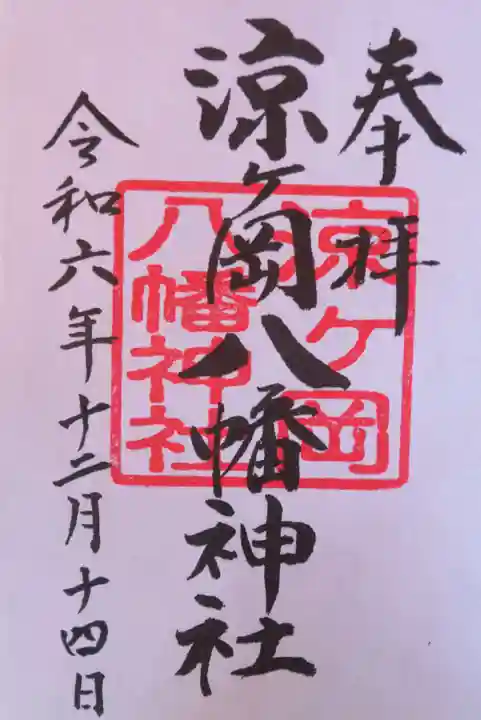 奉拝
涼ヶ岡八幡神社
涼ケ岡
八幡神社
令和六年十二月十四日